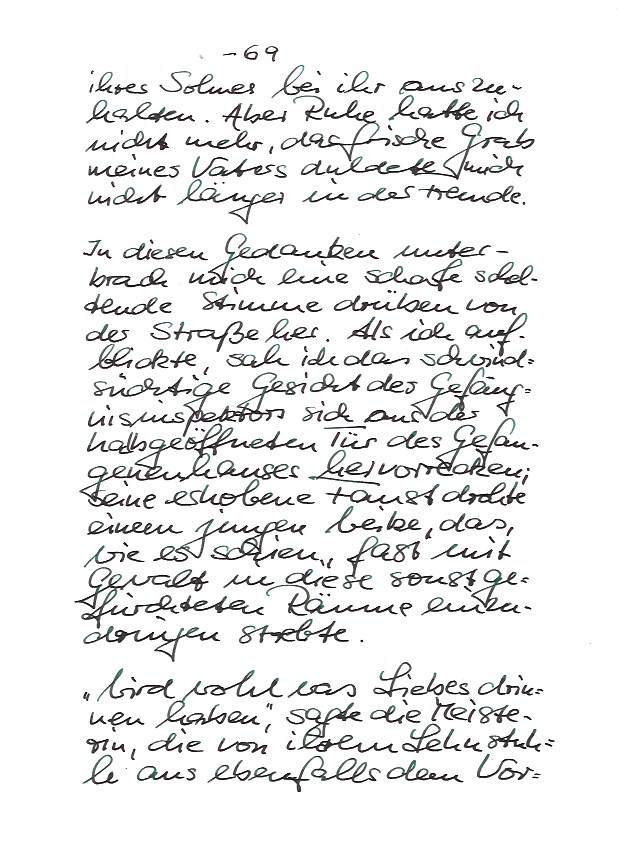 -69
ihres Sohnes bei ihr auszu-
halten. Aber Ruhe hatte ich
nicht mehr, das frische Grab
meines Vaters duldete mich
nicht länger in der Fremde.
In diesen Gedanken unter-
brach mich eine scharfe schel-
tende Stimme drüben von
der Straße her. Als ich auf-
blickte, sah ich das schwind=
süchtige Gesicht des Gefäng=
nisinspektors sich aus der
halbgeöffneten Tür des Gefan-
genenhauses hervorrecken;
seine erhobene Faust drohte
einem jungen Weibe, das,
wie es schien, fast mit
Gewalt in diese sonst ge=
fürchteten Räume einzu-
dringen strebte.
„Wird wohl was Liebes drin=
nen haben", sagte die Meiste-
rin, die von ihrem Lehnstuh=
le aus ebenfalls dem Vor=